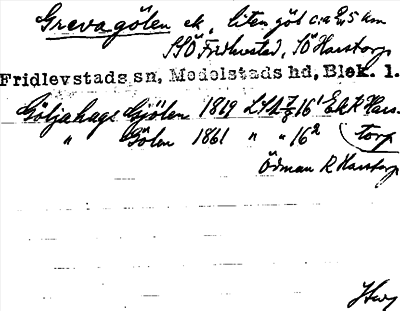 Grevagölen ek, liten göl c:a 2,5 km
SSÖ Fridlevstad, SÖ Harstorp
Fridlevstads sn, Medelstads hd, Blek. l.
Göljahags Gjölen 1819 LSA 16¹ Ek R Hars-
" Gölen 1861 " " 16² torp
Ödman R Harstorp